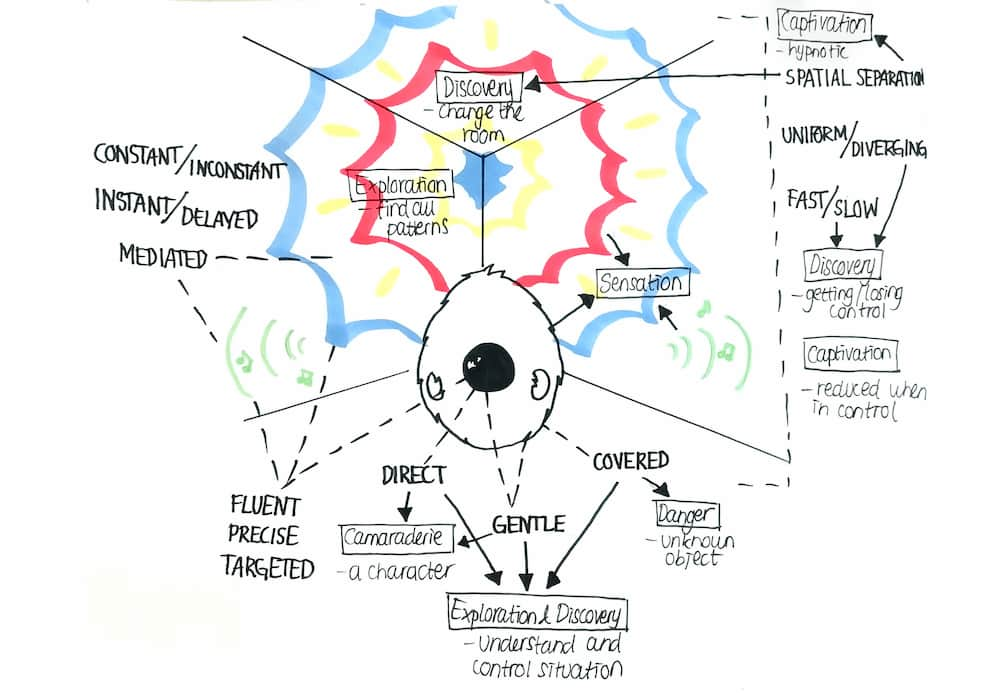 Captivation
- hypnotic
SPATIAL SEPARATION
Discovery
- change the
room
UNIFORM/DIVERGING
CONSTANT/INCONSTANT
Exploration
- find all
patterns
INSTANT/DELAYED
FAST/SLOW
MEDIATED
Sensation
Discovery
- getting/losing
control
Captivation
- reduced when
in control
DIRECT
COVERED
FLUENT
PRECISE
TARGETED
Camaraderie
- a character
GENTLE
Danger
- unknown
object
Exploration & Discovery
- understand and
control situation